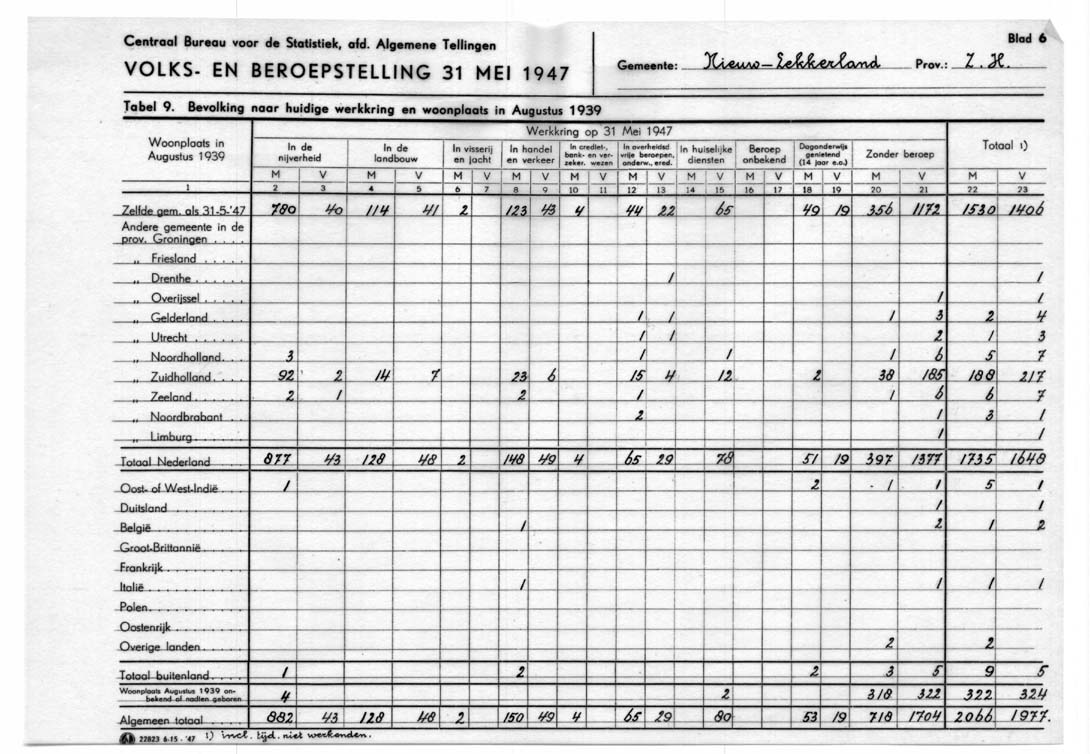 Centraal Bureau voor de Statistiek, afd. Algemene Tellingen
VOLKS- EN BEROEPSTELLING 31 MEI 1947
Blad 6
Gemeente: Nieuw-Lekkerland Prov.: Z. H.
Tabel 9. Bevolking naar huidige werkkring en woonplaats in Augustus 1939
Woonplaats in Augustus 1939
Werkkring op 31 Mei 1947
In de nijverheid
In de landbouw
In visserij en jacht
In handel en verkeer
In crediet-, bank- en verzeker. wezen
In overheidsd vrije beroepen, onderw., ered.
In huiselijke diensten
Beroep onbekend
Dagonderwijs genietend (14 jaar e.o.)
Zonder beroep
Totaal ¹)
M V M V M V M V M V M V M V M V M V M V M V
1 2 3 4 5 6 7 8 9 10 11 12 13 14 15 16 17 18 19 20 21 22 23
Zelfde gem. als 31-5-'47 780 40 114 41 2 123 43 4 44 22 65 49 19 356 1172 1530 1406
Andere gemeente in de
prov. Groningen . . . .
„ Friesland . . . . .
„ Drenthe . . . . . . 1 1
„ Overijssel . . . . . 1 1
„ Gelderland . . . . 1 1 1 3 2 4
„ Utrecht . . . . . . 1 1 2 1 3
„ Noordholland. . . 3 1 1 1 6 5 7
„ Zuidholland. . . . 92 2 14 7 23 6 15 4 12 2 38 185 188 217
„ Zeeland . . . . . . 2 1 2 1 1 6 6 7
„ Noordbrabant . . 2 1 3 1
„ Limburg. . . . . . 1 1
Totaal Nederland . . . . 877 43 128 48 2 148 49 4 65 29 78 51 19 397 1377 1735 1648
Oost- of West-Indië . . . 1 2 1 1 5 1
Duitsland . . . . . . . . 1 1
België . . . . . . . . . 1 2 1 2
Groot-Brittannië . . . . .
Frankrijk . . . . . . . .
Italië . . . . . . . . . 1 1 1 1
Polen. . . . . . . . . .
Oostenrijk . . . . . . .
Overige landen. . . . . 2 2
Totaal buitenland. . . . 1 2 2 3 5 9 5
Woonplaats Augustus 1939 on-
bekend of nadien geboren 4 2 318 322 322 324
Algemeen totaal . . . . 882 43 128 48 2 150 49 4 65 29 80 53 19 718 1704 2066 1977.
22823 6-15 - '47 ¹) incl. tijd. niet werkenden.